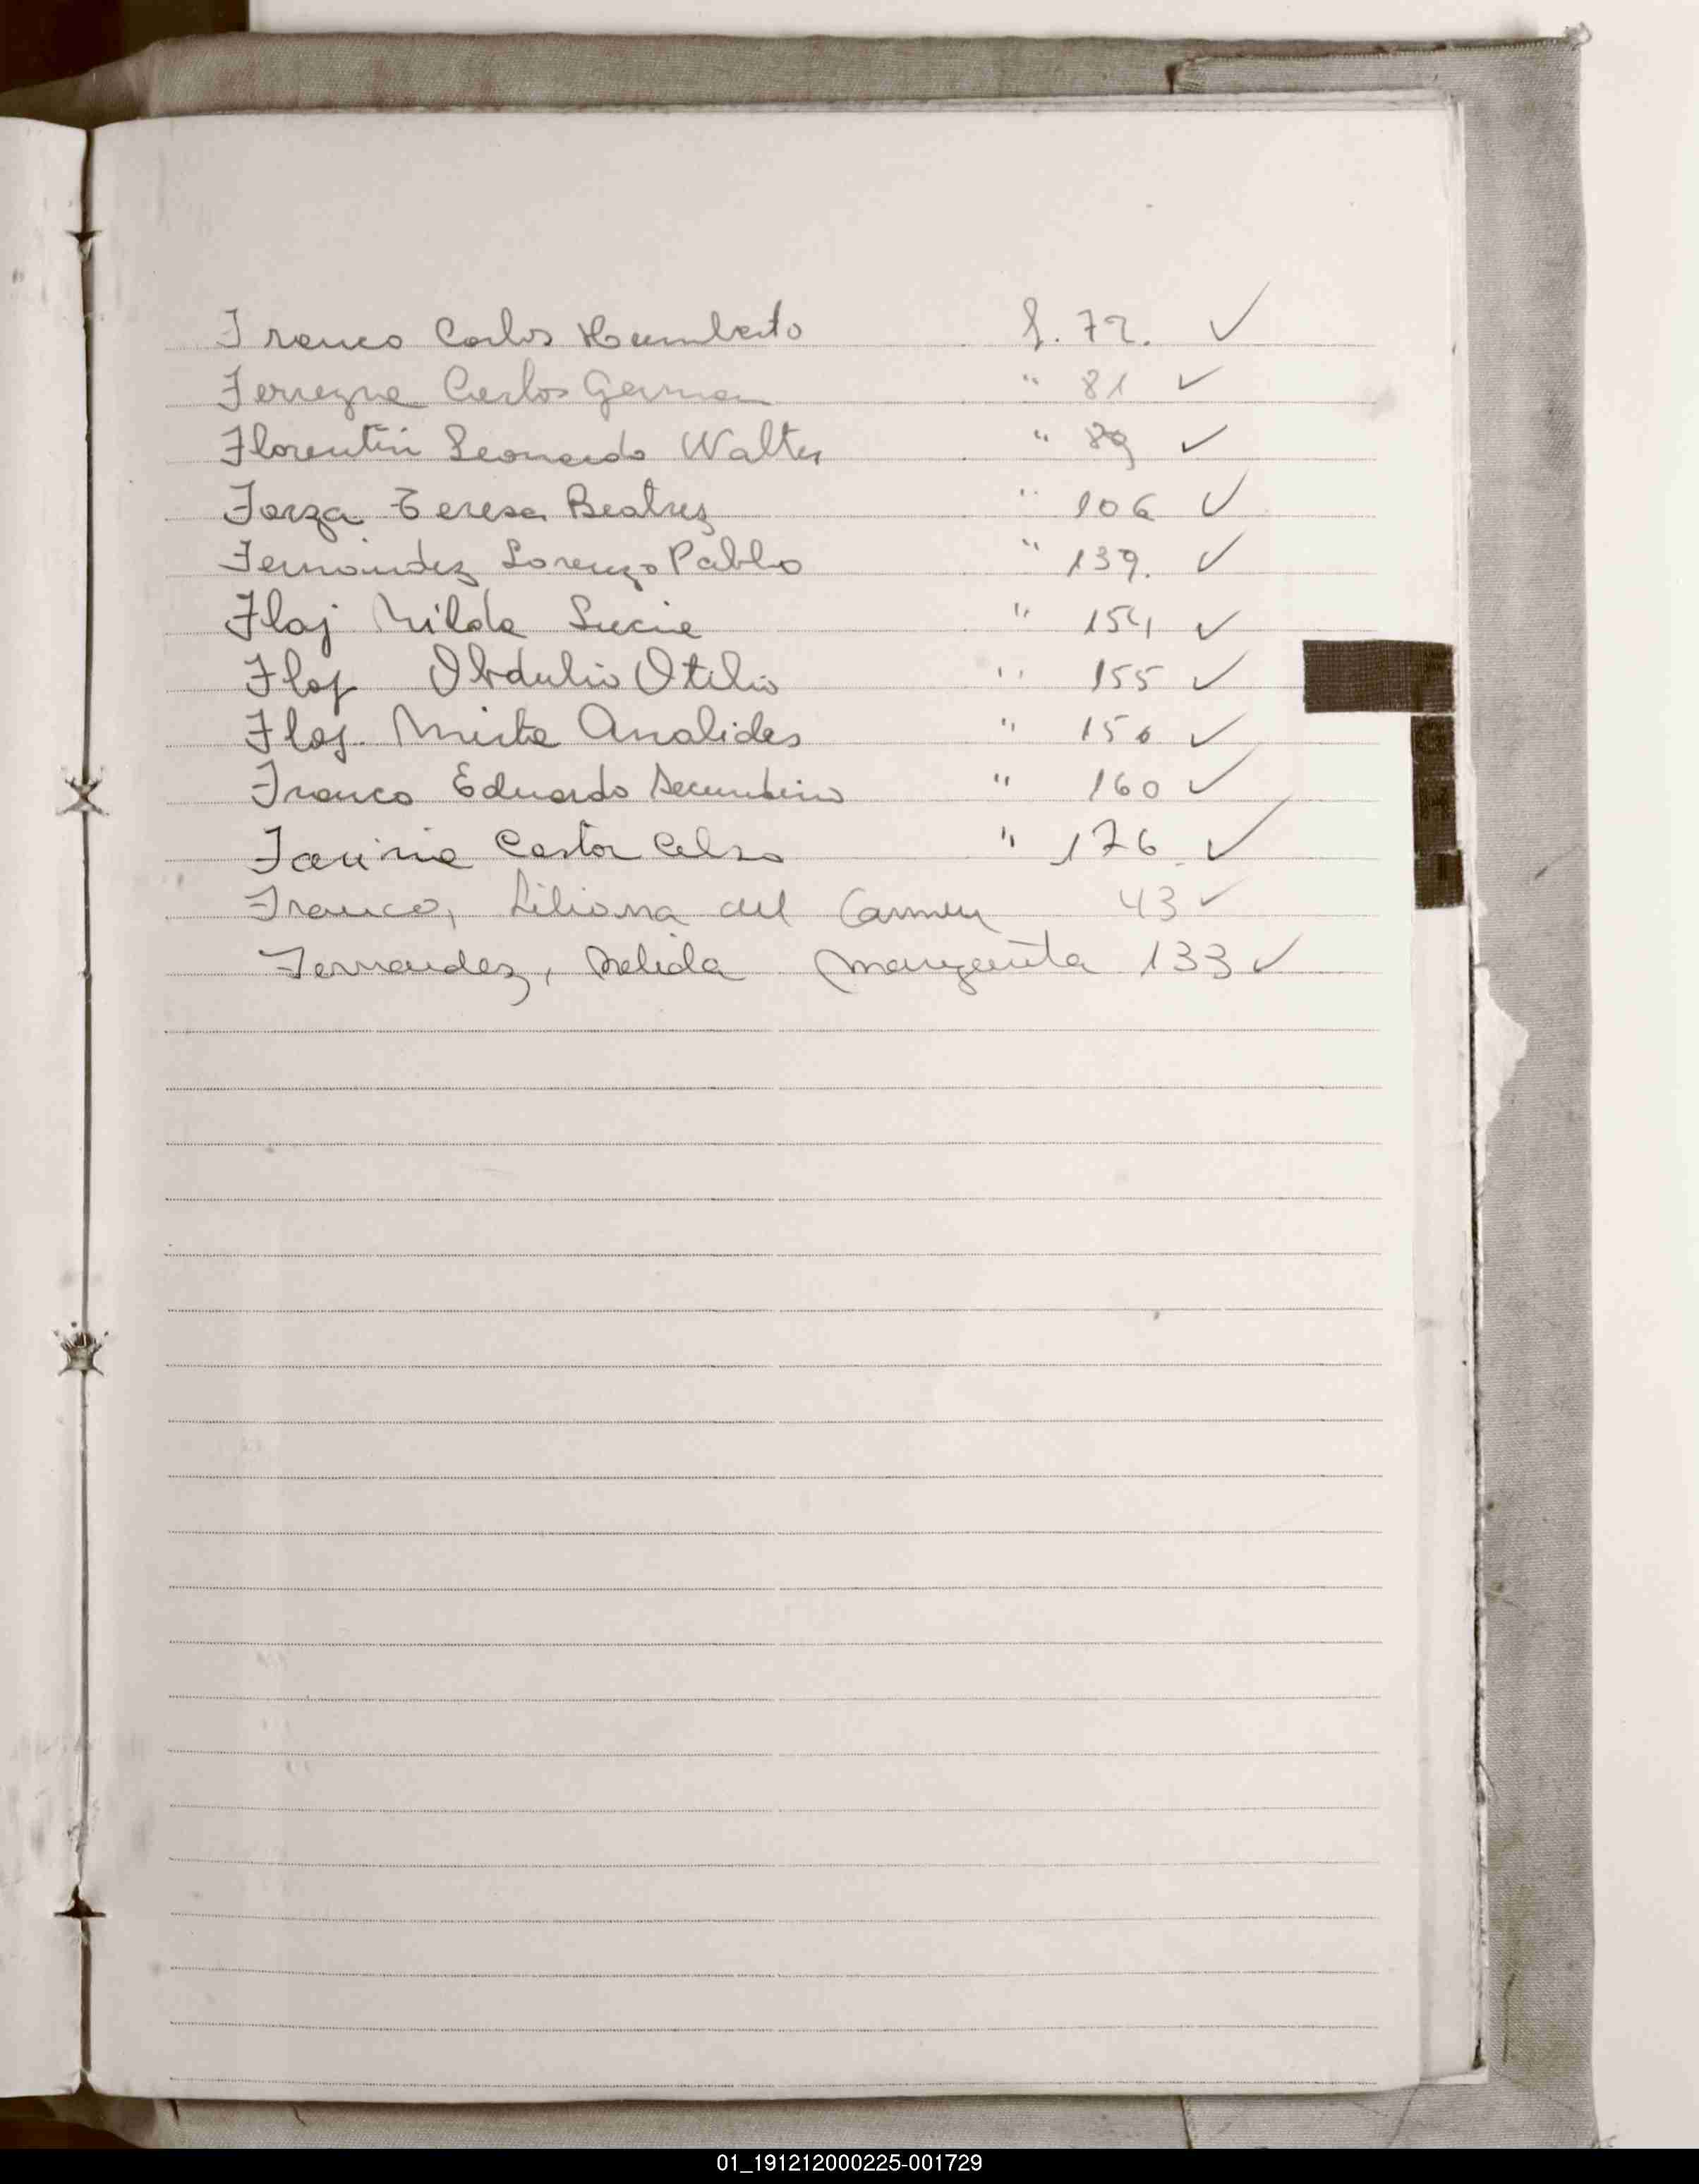 Franco Carlos Humberto f. 72. ✓
Ferreyra Carlos German " 81 ✓
Florentin Leonardo Walter " 89 ✓
Forza Teresa Beatriz " 106 ✓
Fernández Lorenzo Pablo " 139. ✓
Flaj Nilda Lucia " 154 ✓
Flaj Obdulio Otilio " 155 ✓
Flaj. Mirta Analides " 156 ✓
Franco Eduardo Secundino " 160 ✓
Fariña Castor Celso " 176 ✓
Franco, Liliana del Carmen 43 ✓
Fernandez, Nelida Margarita 133 ✓
01_191212000225-001729